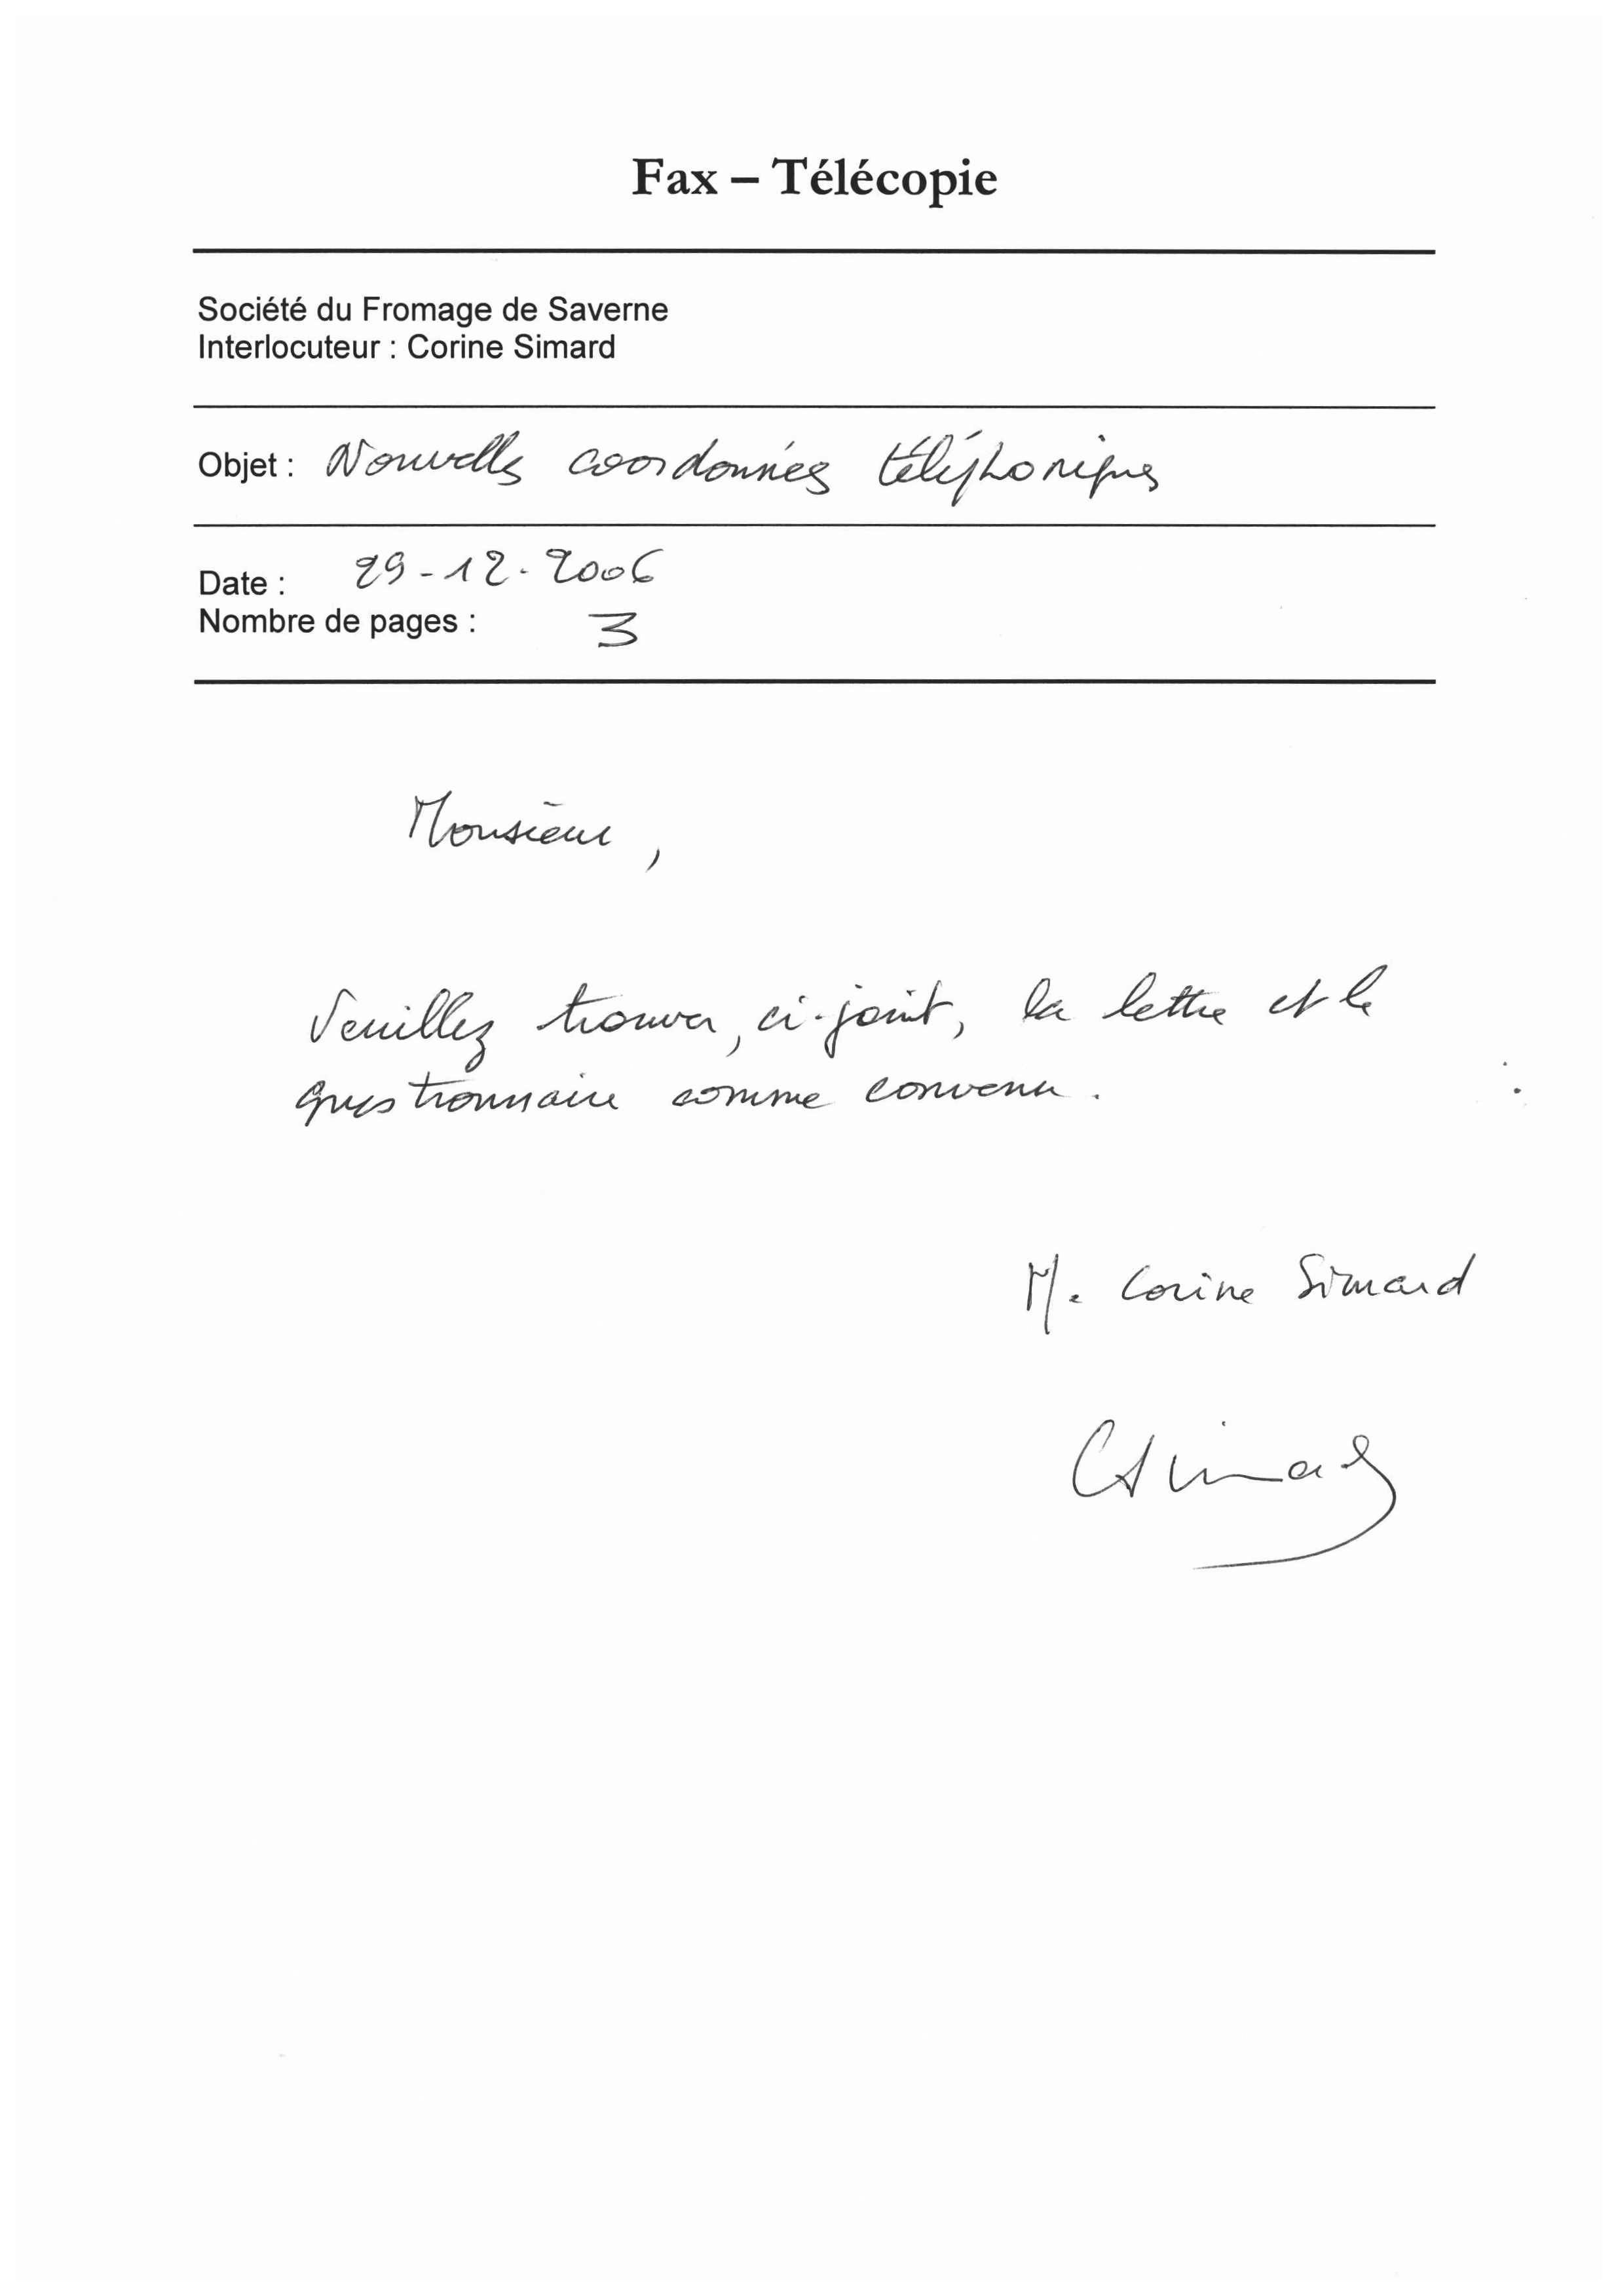 Fax – Télécopie
Société du Fromage de Saverne
Interlocuteur : Corine Simard
Objet : Nouvelles coordonnées téléphoniques
Date : 29-12-2006
Nombre de pages : 3
Monsieur,
Veuillez trouver, ci-joint, la lettre et le
questionnaire comme convenu.
M. Corine Simard
CSimard